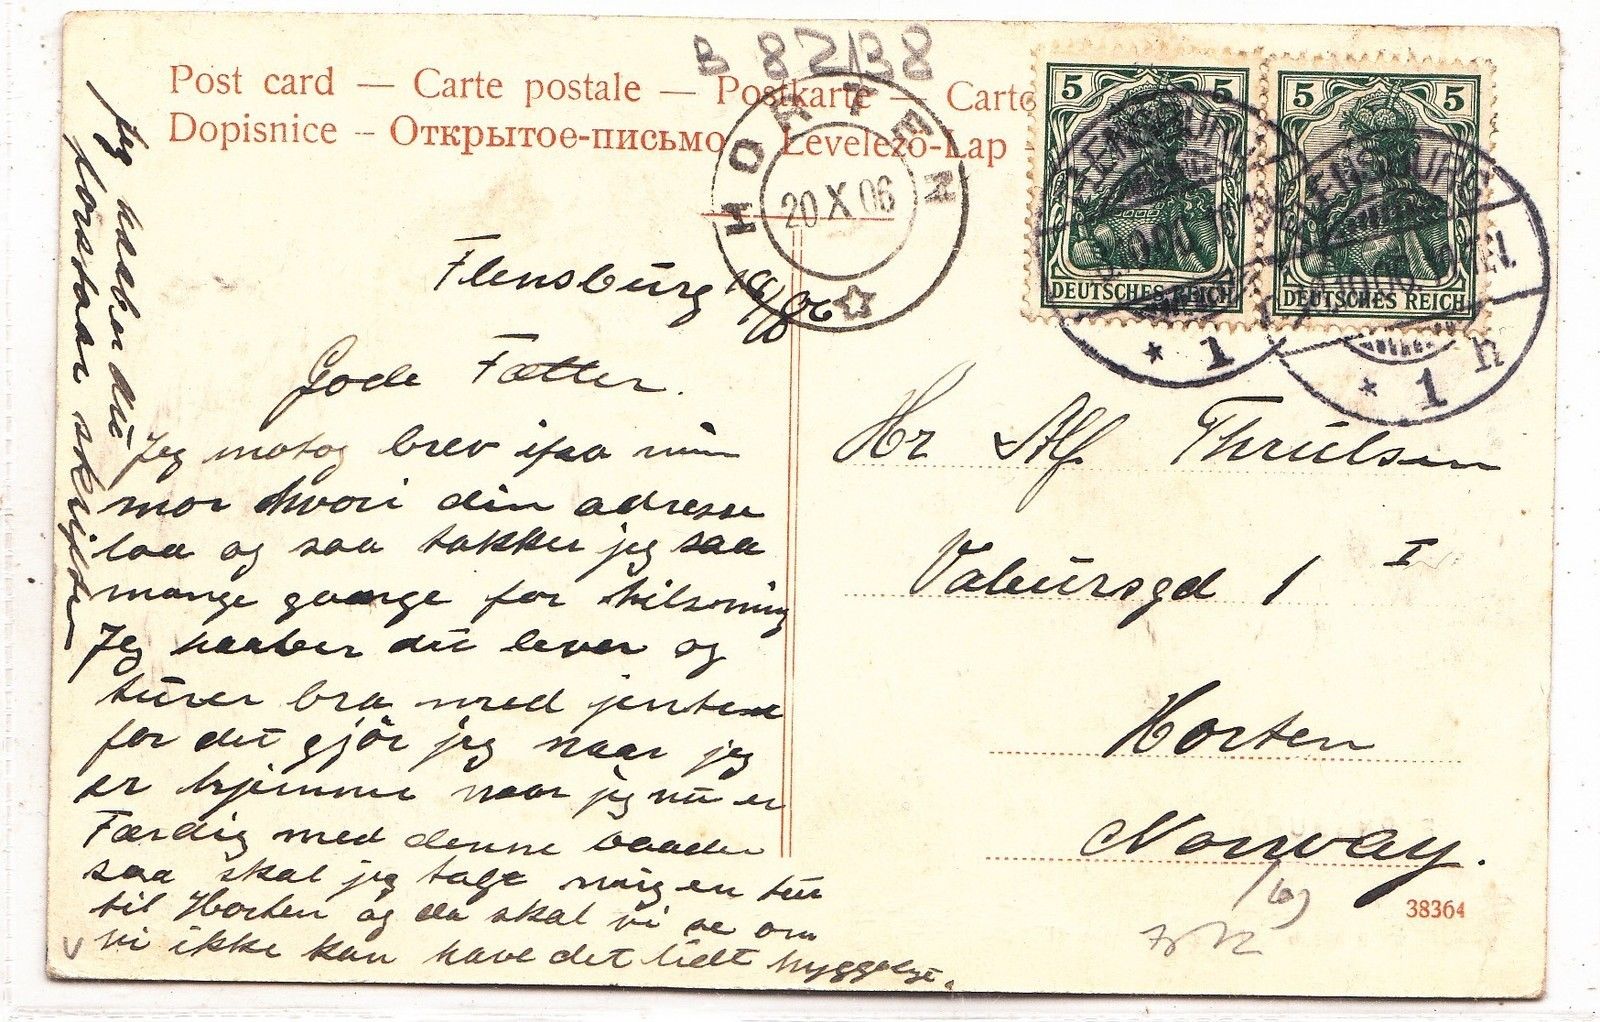 B 82138
Post card — Carte postale — Postkarte — Carto
Dopisnice – Открытое-письмо Levelező-Lap
HORTEN
20 X 06
5 5
DEUTSCHES REICH
5 5
DEUTSCHES REICH
FLENSBURG
* 1
FLENSBURG
* 1 n
Flensburg
Gode Fætter.
Jeg motog brev ifra min
mor hvori din adresse
laa og saa takker jeg saa
mange gange for hilsening
Jeg haaber du lever og
turer bra med jentene
for det gjör jeg naar jeg
er hjemme naar jeg nu er
Færdig med denne baaden
saa skal jeg tage mig en tur
til Horten og da skal vi se om
vi ikke kan have det lidt hyggeligt.
Jeg haaber du
forstaar skriften
Hr Alf. Thrulsen
Vabursgd 1 I
Horten
Norway.
38364